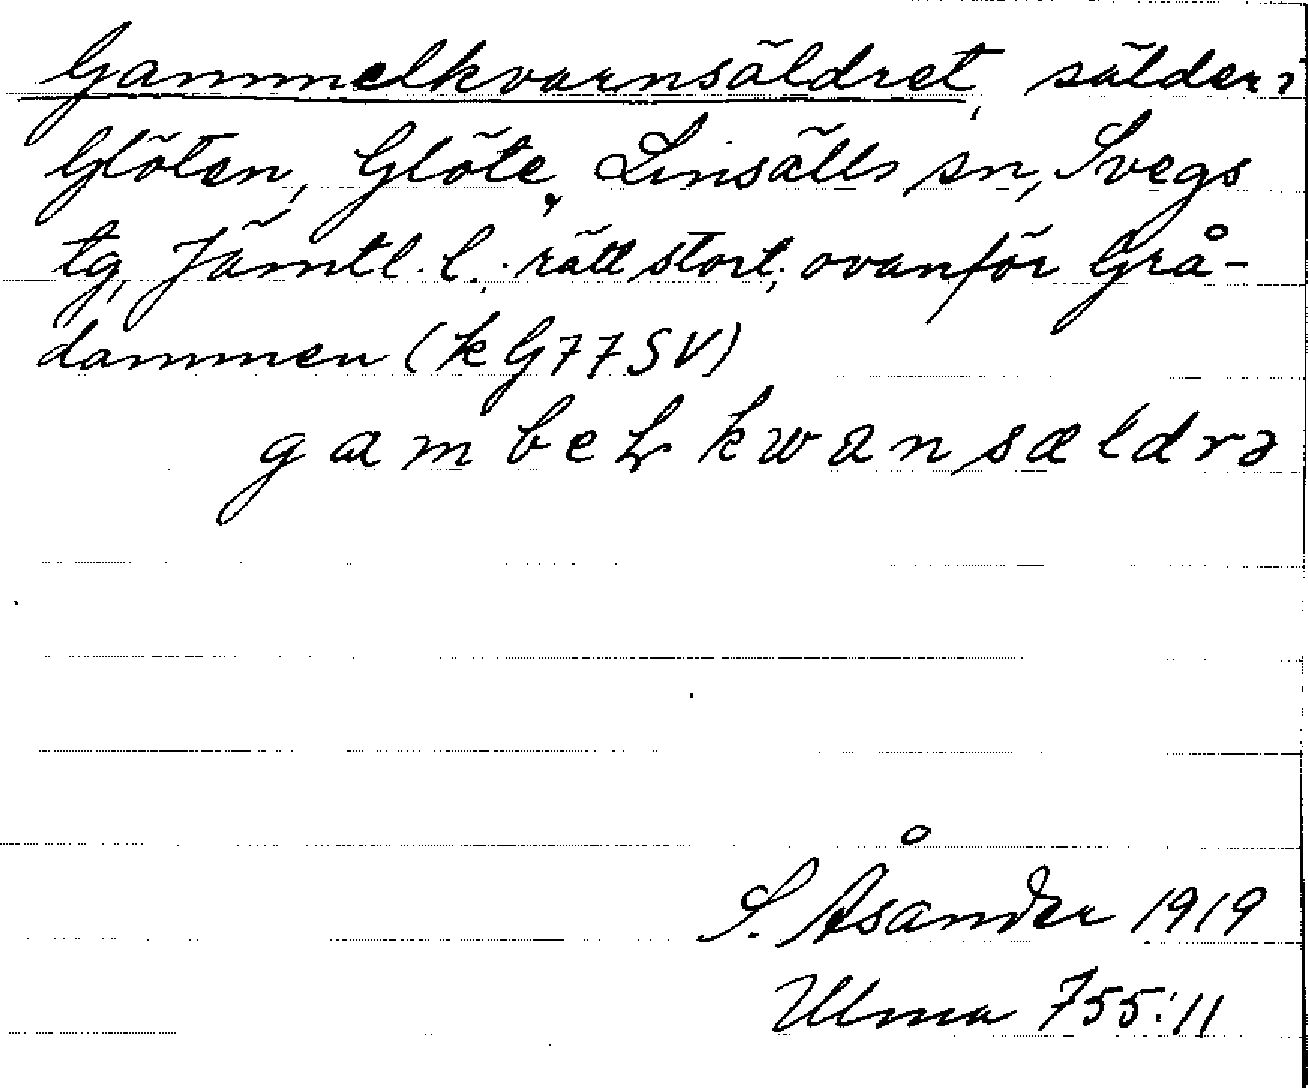 Gammelkvarnsäldret, sälder i
Glöten, Glöte, Linsälls sn, Svegs
tg, Jämtl. l.: rätt stort; ovanför Grå-
dammen (k G77SV)
gambel kwansældrə
S. Åsander 1919
Ulma 755:11